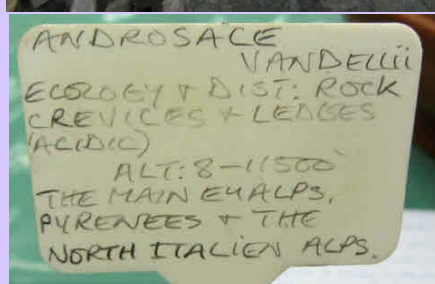 ANDROSACE
VANDELLII
ECOLOGY & DIST: ROCK
CREVICES & LEDGES
(ACIDIC)
ALT: 8-11500
THE MAIN ALPS,
PYRENEES & THE
NORTH ITALIEN ALPS.